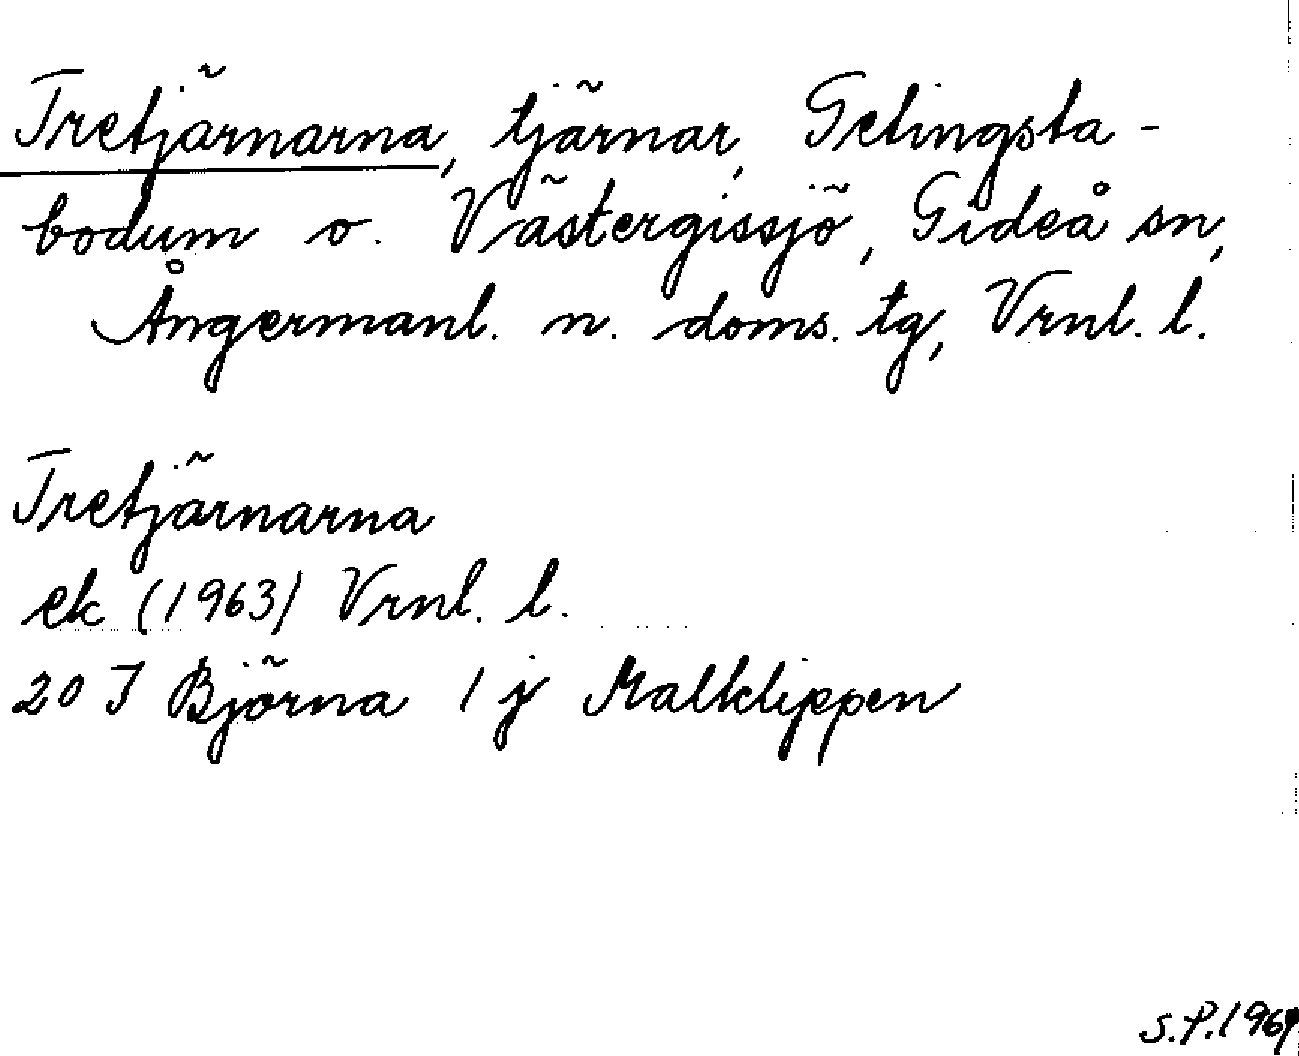 Tretjärnarna, tjärnar, Getingsta-
bodum o. Västergissjö, Gideå sn,
Ångermanl. n. doms. tg, Vrnl. l.
Tretjärnarna
ek (1963) Vrnl. l.
20 I Björna 1 j Malklippen
S.P. 1969